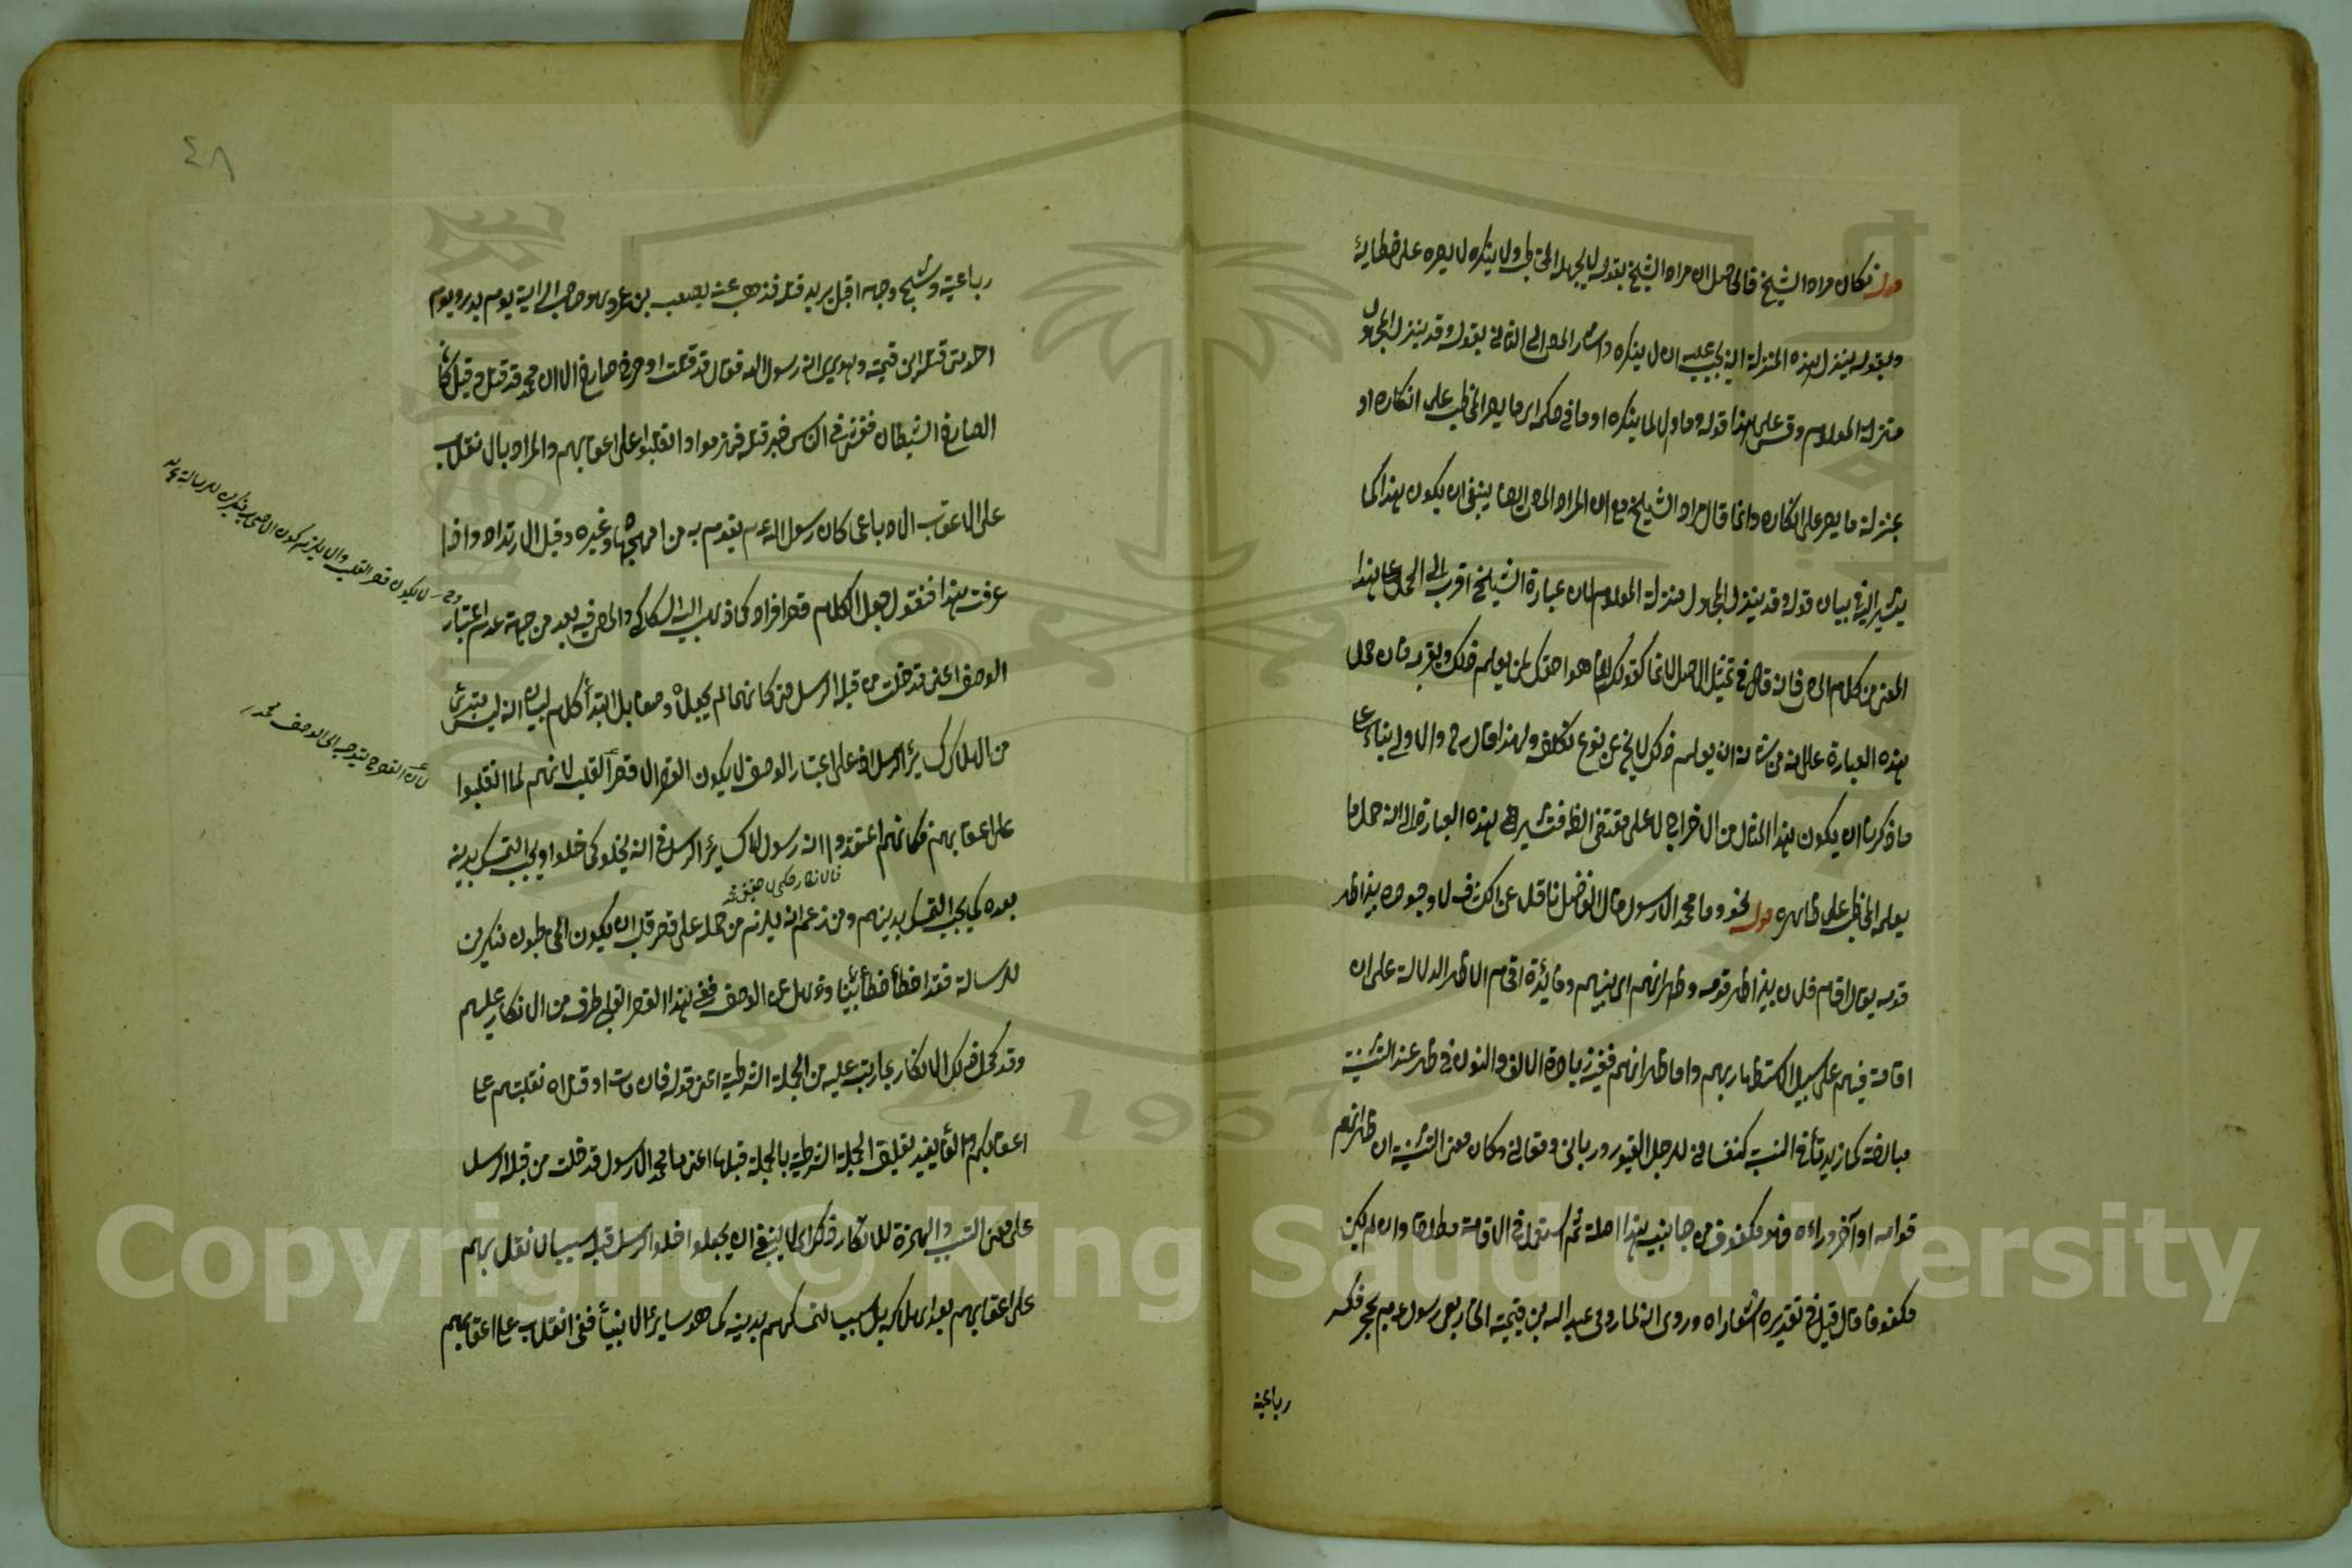 قوله فكان مراد الشيخ قال حاصل ان مراد الشيخ بقوله لا يجهله المخاطب ولا ينكره لا يصر على خطائه
وبقوله ينزل هذه المنزلة انه يجب عليه ان لا ينكره واشار المص الى الثاني بقوله وقد ينزل المجهول
منزلة المعلوم وقس على هذا قوله وما ول لما ينكره او ما في حكمه اي ما يصر المخاطب على انكاره او
بمنزلة ما يصر على انكاره وانما قال مراد الشيخ مع ان المراد المص ايضا ينبغي ان يكون هذا كما
يشير اليه في بيان قوله وقد ينزل المجهول منزلة المعلوم لان عبارة الشيخ اقرب الى الحمل على هذا
المعنى من كلام المص فانه قال في تمثيل الاصل لانما كقولك انما هو اخوك لمن يعلم ذلك ويقر به فان حمل
هذه العبارة على انه من شانه ان يعلم ذلك لا يخ عن نوع تكلف ولهذا قال والاولى بناء على
ما ذكرنا ان يكون هذا المثال من الاخراج لا على مقتضى الظ فتشير في هذه العبارة الا انه حمل ما
يعلمه المخاطب على ظاهره قوله نحو وما محمد الا رسول قال الفاضل ناقلا عن الكشاف لا وجوده بين اظهر
قومه يقال اقام فلان بين اظهر قومه وظهرانهم اي بينهم وفائدة اقحام الاظهر الدلالة على ان
اقامته فيهم على سبيل الاستظهار بهم واما ظهرانهم ففيه زيادة الالف والنون في ظهر عند التثنية
مبالغة كما زيدتا في النسبة كنفساني للرجل الغيور ورباني وفوقاني وكان معنى التثنية ان ظهرانهم
قدامه او آخر وراءه فهو مكفوف من جانبيه هذا اصله ثم استعمل في الاقامة مطلقا وان لم يكن
مكفوفا قال قيل في تقديره اشعار اه وروى انه لما رمى عبد الله بن قمئة الحارثي رسول عم بحجر فكسر
رباعيته
٤٨
رباعيته وشج وجهه اقبل يريد قتله فذب عنه مصعب بن عمرو وهو صاحب الراية يوم بدر ويوم
احد حتى قتله ابن قمئة وهو يرى انه رسول الله فقال قد قتلت او صرخ صارخ الا ان محمد قد قتل وقيل كان
الصارخ الشيطان ففشى في الناس خبر قتله فهزموا وانقلبوا على اعقابهم والمراد بالانقلاب
على الاعقاب الادبار عما كان رسول الله عم يقوم به من امر الجهاد وغيره وقيل الارتداد واذا
عرفت هذا فنقول جعل الكلام قصر افراد كما ذهب اليه السكاكي والمص فيه بعد من جهة عدم اعتبار
الوصف اعني قد خلت من قبله الرسل حتى كانهم لم يجعلوه وصفا بل ابتداء كلام لبيان انه ليس مبتدئ
من الهلاك كسائر الرسل اذ على اعتبار الوصف لا يكون القصر الا قصر القلب لانهم لما انقلبوا
على اعقابهم فكانهم اعتقدوا انه رسول لا كسائر الرسل في انه يخلو كما خلوا ويجب التمسك بدينه
فالانكار حكمي لا حقيقي منه
بعده كما يجب التمسك بدينهم ومن زعم انه يلزم من حمله على قصر قلب ان يكون المخاطبون منكرين
للرسالة فقد اخطأ خطأ بينا وذهل عن الوصف ففي هذا القصر القلبي طرف من الانكار عليهم
وقد كمل ذلك الانكار بما رتب عليه من الجملة الشرطية اعني قوله فان مات او قتل انقلبتم على
اعقابكم والفا يفيد تعليق الجملة الشرطية بالجملة قبلها اعني ما محمد الا رسول قد خلت من قبله الرسل
على معنى التسبب والهمزة للانكار ذلك اي لا ينبغي ان يجعلوا خلو الرسل قبله سببا لانقلابهم
على اعقابهم بعد هلاكه بل سببا لتمسكهم بدينه كما هو سائر الانبياء ففي انقلاب على اعقابهم
وح لا يكون قصر القلب والا يلزم كون الاصحاب منكرين للرسالة
لان القصر ح يتوجه الى الوصف